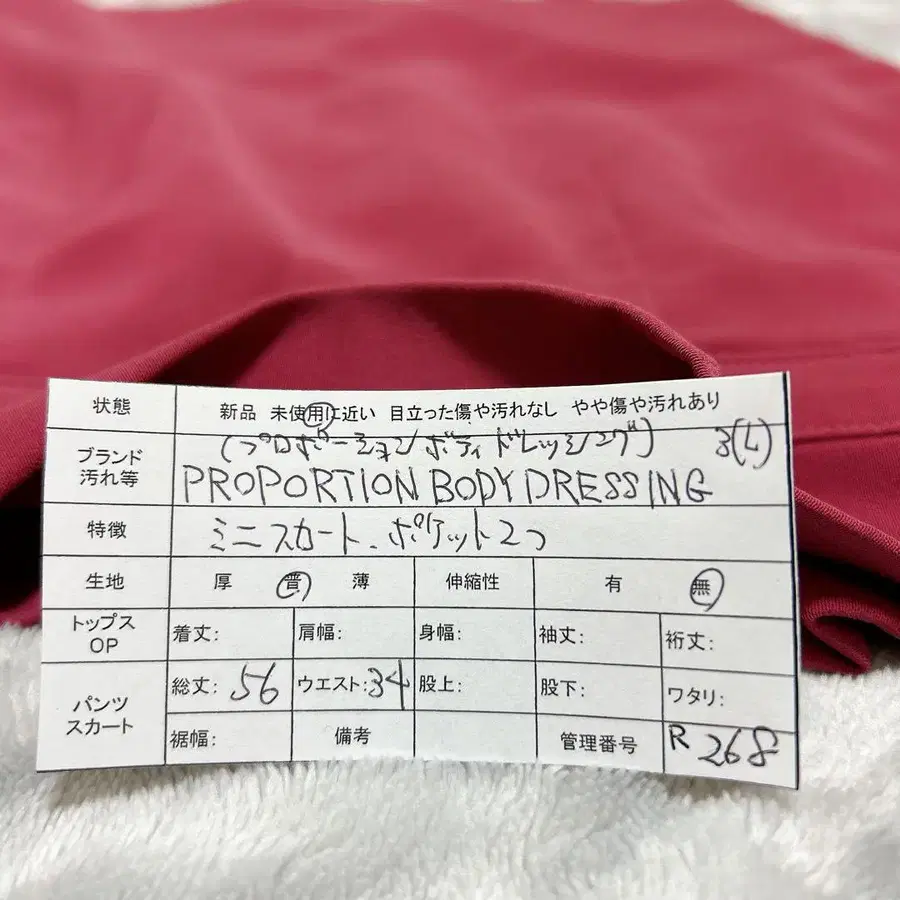 状態 新品 未使用に近い 目立った傷や汚れなし やや傷や汚れあり
ブランド 汚れ等 (プロポーションボディドレッシング) 3(L)
PROPORTION BODY DRESSING
特徴 ミニスカート、ポケット2つ
生地 厚 普 薄 伸縮性 有 無
トップス OP 着丈: 肩幅: 身幅: 袖丈: 裄丈:
パンツ スカート 総丈: 56 ウエスト: 34 股上: 股下: ワタリ:
裾幅: 備考 管理番号 R 268